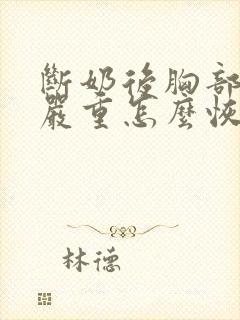 斷奶後胸部
嚴重怎麼恢
林德